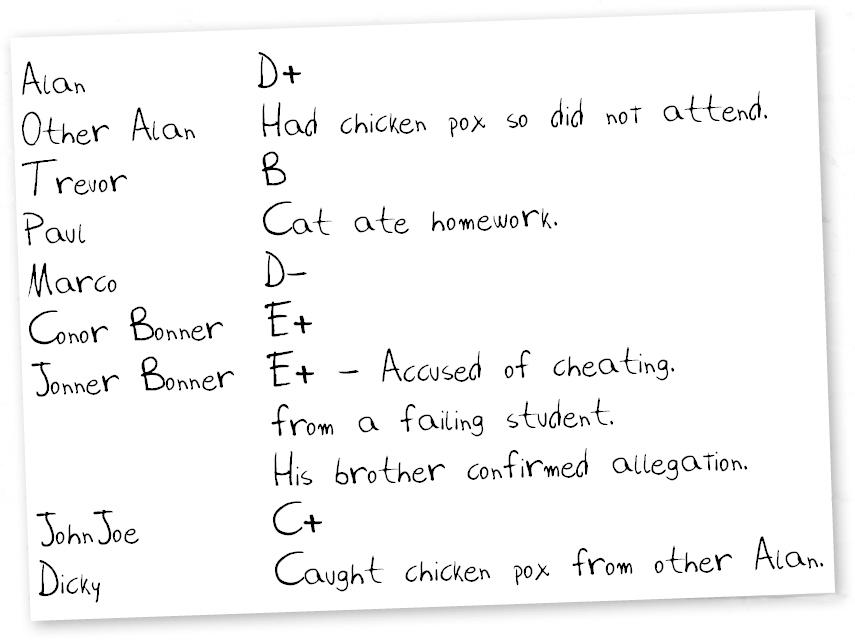 Alan D+
Other Alan Had chicken pox so did not attend.
Trevor B
Paul Cat ate homework.
Marco D-
Conor Bonner E+
Jonner Bonner E+ - Accused of cheating.
from a failing student.
His brother confirmed allegation.
JohnJoe C+
Dicky Caught chicken pox from other Alan.